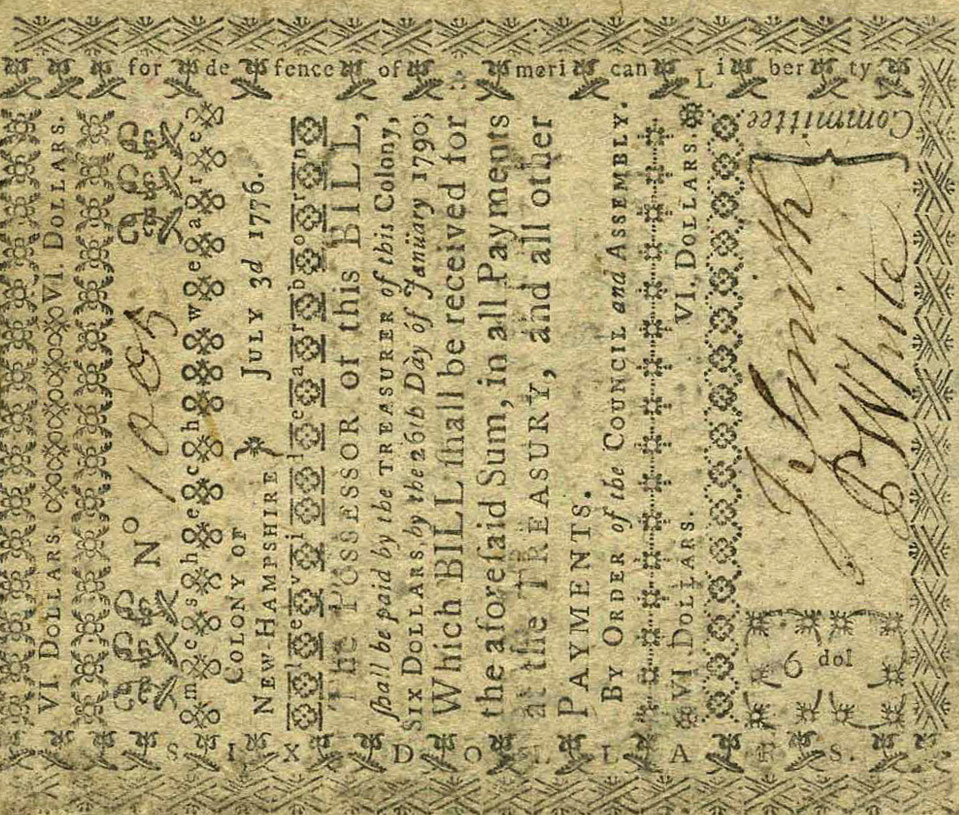 VI. DOLLARS. VI. DOLLARS.
No
COLONY OF
NEW-HAMPSHIRE } JULY 3d 1776.
The POSSESSOR of this BILL,
ſhall be paid by the TREASURER of this Colony,
SIX DOLLARS, by the 26th Day of January 1790;
Which BILL ſhall be received for
the aforeſaid Sum, in all Payments
at the TREASURY, and all other
PAYMENTS.
By ORDER of the COUNCIL and ASSEMBLY.
VI. DOLLARS. VI. DOLLARS.
J Smith
White
Committee
6 dol
SIX DOLLARS.
for defence of American Liberty